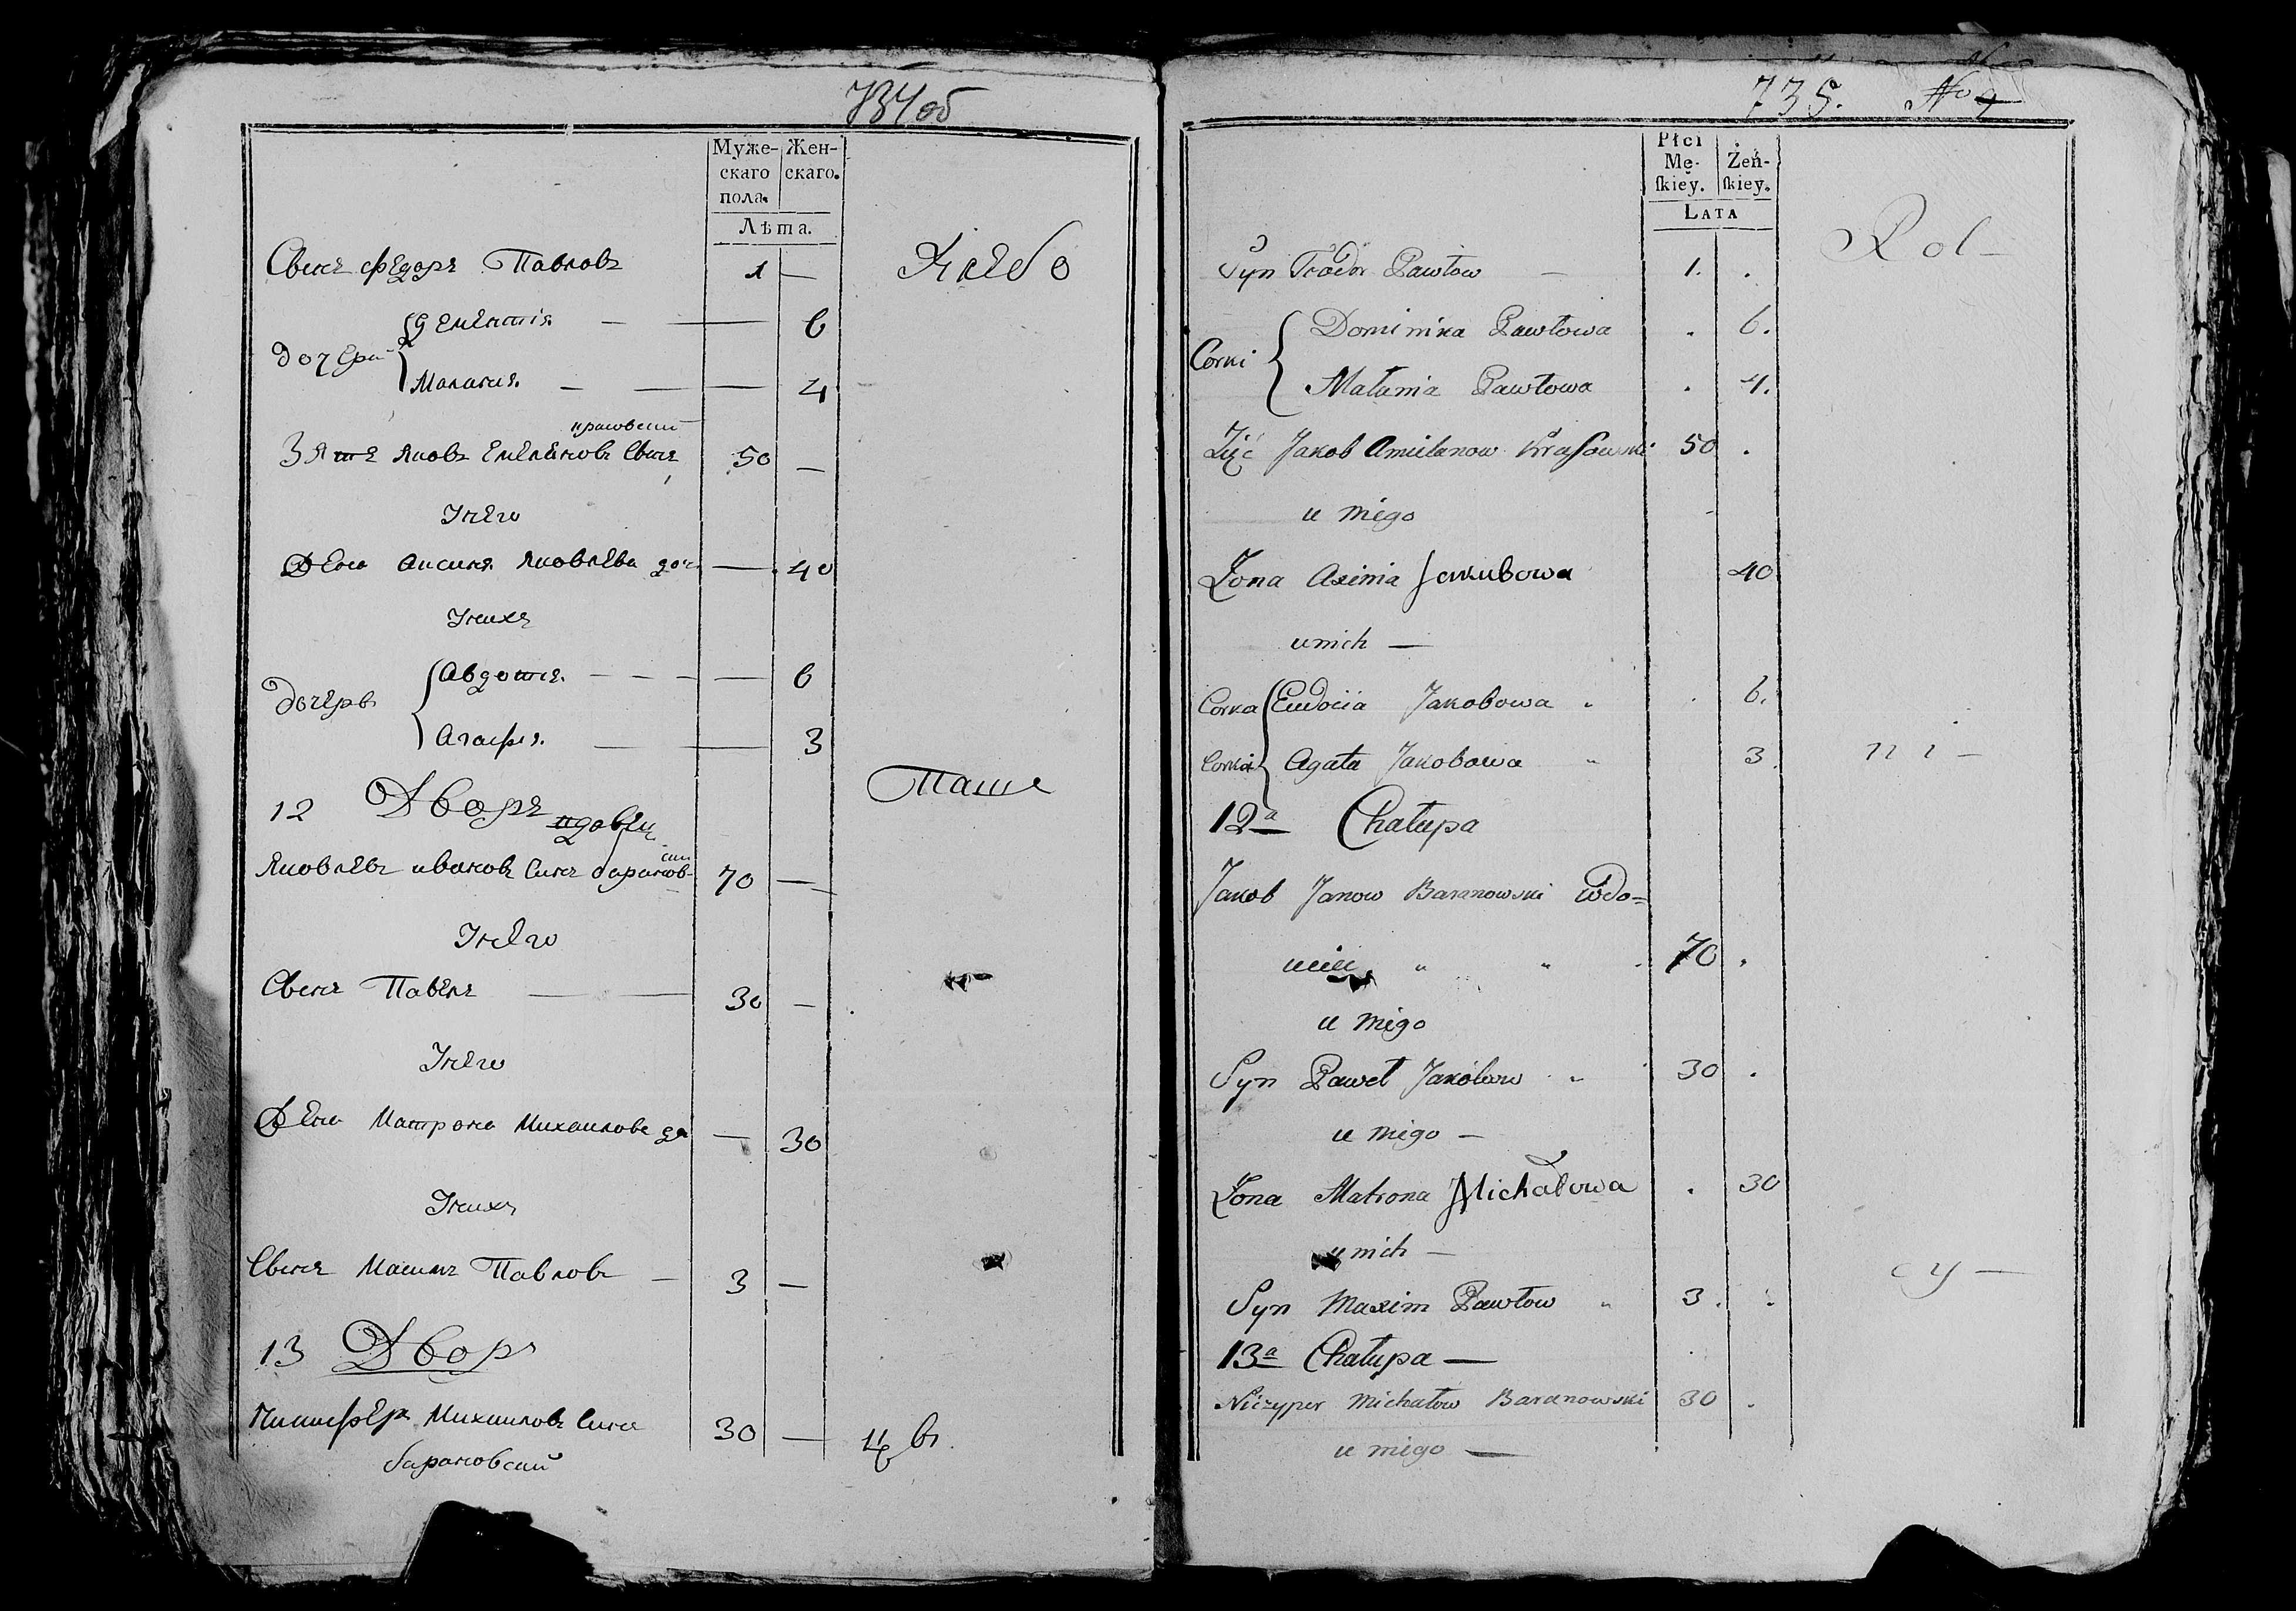 734об
Муже-
скаго
пола.
Жен-
скаго.
Лѣта.
Свенъ Федоръ Павловъ 1 —
Хлебо
дочери
Дементия — — 6
Малания — — — 4
красовский
Зять Яковъ Емелянов Свенъ 50 —
Унего
Жена Аксиня Яковлева доч — 40
Унихъ
дочерѣ
Авдотя. — — — — 6
Агафия. — — 3
12 Дворъ вдовец
Паше
ски
Яковлевъ ивановъ Синъ баранов 70 —
Унего
Свенъ Павелъ — — 30 —
Унего
Жена Матрона Михаилова до — 30
Унихъ
Свенъ Максимъ Павловъ — 3 —
13 Дворъ
Никифоръ Михаиловъ Синъ 30 —
барановский
735. No 9
Płci
Mę-
ſkiey.
Żeń-
ſkiey.
LATA
Rol-
Syn Teodor Pawłow — 1. .
Corki
Dominika Pawłowa . 6.
Małania Pawłowa . 4.
Zięć Jakob Amielanow Kraſowski 50 .
u niego
Żona Axinia Jakubowa 40
unich —
Corka Eudocia Jakobowa . . 6.
Corka Agata Jakobowa " 3.
ni-
12a Chałupa
Jakob Janow Baranowski Wdo=
wiec " " . 70 .
u niego
Syn Paweł Jakóbow " 30 .
u niego —
Żona Matrona Michałowa . 30
u nich —
cy —
Syn Maxim Pawłow " 3. .
13a Chałupa —
Niczyper Michałow Baranowski 30 .
u niego —